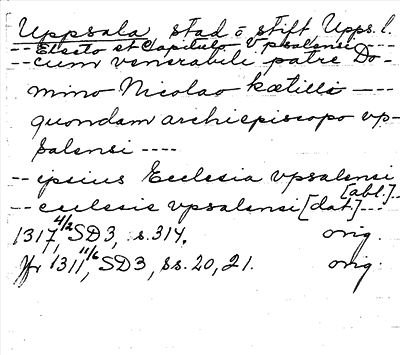 Uppsala stad o stift Upps. l.
-- Electo et Capitulo Vpsalensi ---
-- cum venerabili patre Do-
mino Nicolao kætilli ---
quondam archiepiscopo vp-
salensi ----
-- ipsius Ecclesia vpsalensi [abl.] --
-- eclesie vpsalensi [dat.] ---
1317 4/2, SD3, s. 314. orig.
Jfr 1311 11/6, SD3, ss. 20, 21. orig.